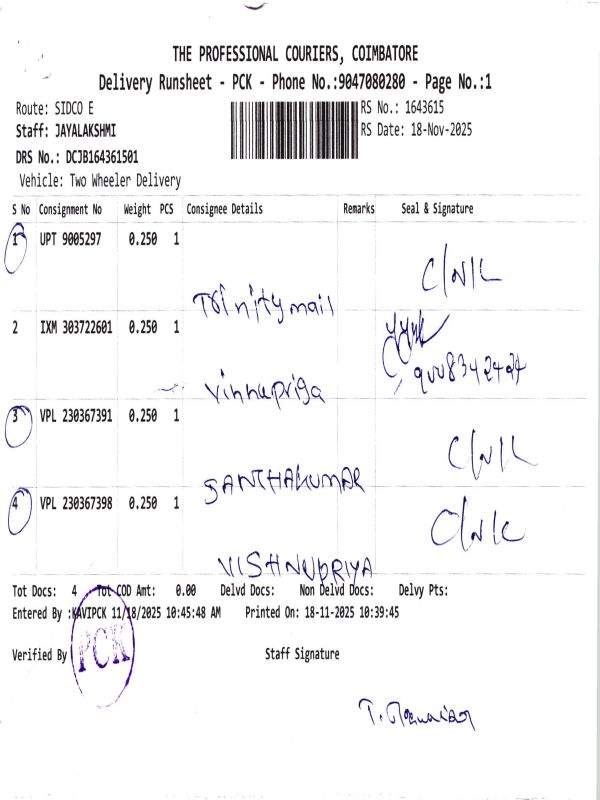 THE PROFESSIONAL COURIERS, COIMBATORE
Delivery Runsheet - PCK - Phone No.:9047080280 - Page No.:1
Route: SIDCO E
RS No.: 1643615
Staff: JAYALAKSHMI
RS Date: 18-Nov-2025
DRS No.: DCJB164361501
Vehicle: Two Wheeler Delivery
S No Consignment No Weight PCS Consignee Details Remarks Seal & Signature
1 UPT 9005297 0.250 1
C/N/L
Trinity mail
2 IXM 303722601 0.250 1
Vinnupriya
3 VPL 230367391 0.250 1
C/N/L
SANTHAKUMAR
4 VPL 230367398 0.250 1
C/N/L
VISHNUPRIYA
Tot Docs: 4 Tot COD Amt: 0.00 Delvd Docs: Non Delvd Docs: Delvy Pts:
Entered By :KAVIPCK 11/18/2025 10:45:48 AM Printed On: 18-11-2025 10:39:45
Verified By PCK Staff Signature